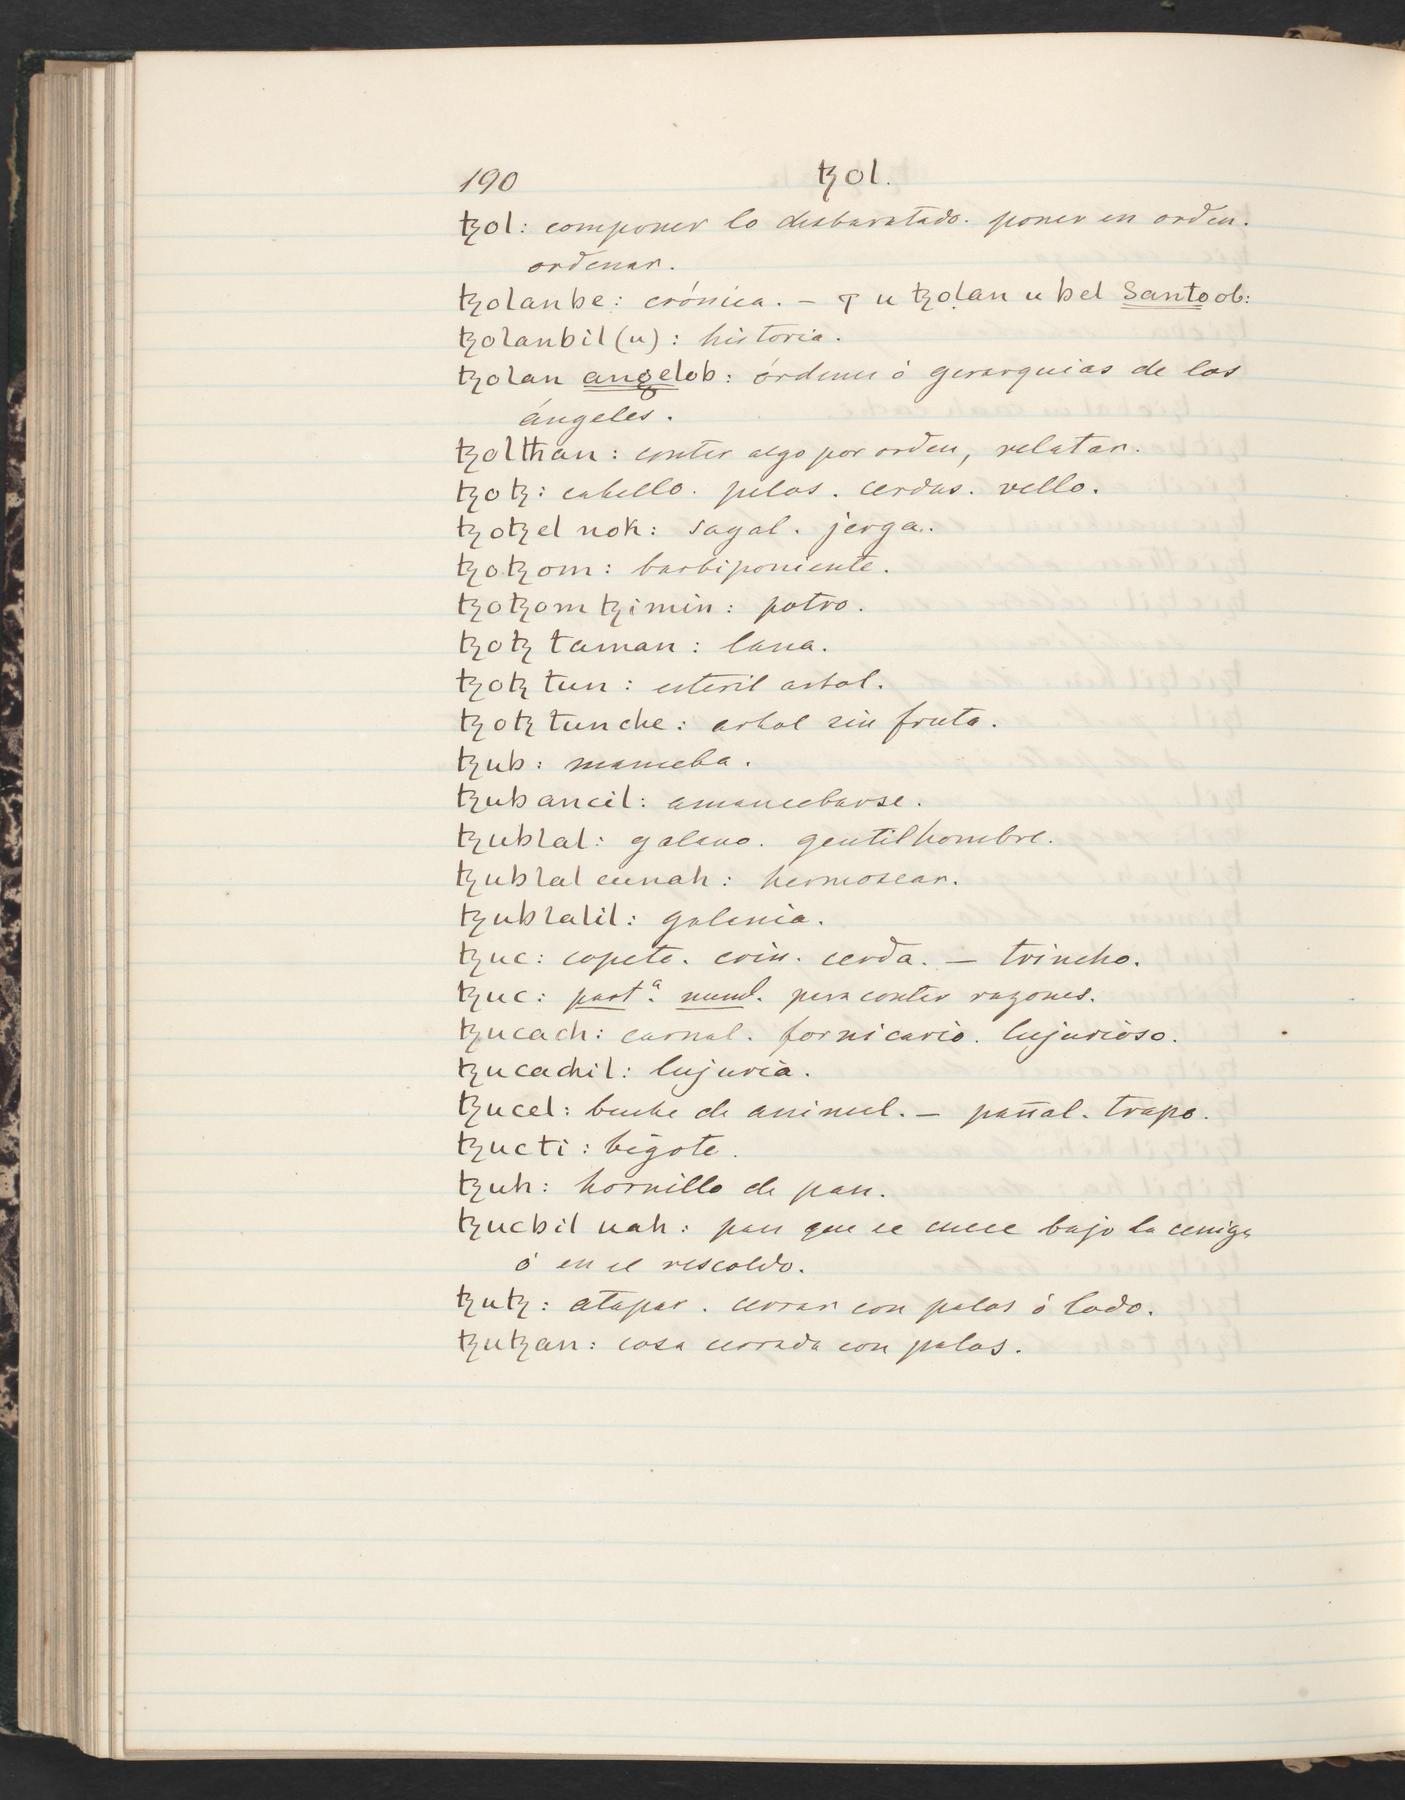 190 ꜩol.
ꜩol: componer lo desbaratado. poner en orden.
ordenar.
ꜩolanbe: crónica. – T u ꜩolan u bel Santoob:
ꜩolanbil (u): historia.
ꜩolan angelob: órdenes ó gerarquias de los
ángeles.
ꜩolthan: contar algo por orden, relatar.
ꜩoꜩ: cabello. pelos. cerdas. vello.
ꜩoꜩel nok: sayal. jerga.
ꜩoꜩom: barbiponiente.
ꜩoꜩom ꜩimin: potro.
ꜩoꜩ taman: lana.
ꜩoꜩ tun: esteril arbol.
ꜩoꜩ tunche: arbol sin fruta.
ꜩub: manceba.
ꜩubancil: amancebarse.
ꜩublal: galano. gentilhombre.
ꜩublal cunah: hermosear.
ꜩublalil: galania.
ꜩuc: copete. crin. cerda. – trincho.
ꜩuc: partª. numl. para contar razones.
ꜩucach: carnal. fornicario. lujurioso.
ꜩucachil: lujuria.
ꜩucel: buche de animal. – pañal. trapo.
ꜩucti: bigote.
ꜩuh: hornillo de pan.
ꜩucbil uah: pan que se cuece bajo la ceniza
ó en el rescoldo.
ꜩuꜩ: atapar. cerrar con palos ó lodo.
ꜩuꜩan: cosa cerrada con palos.